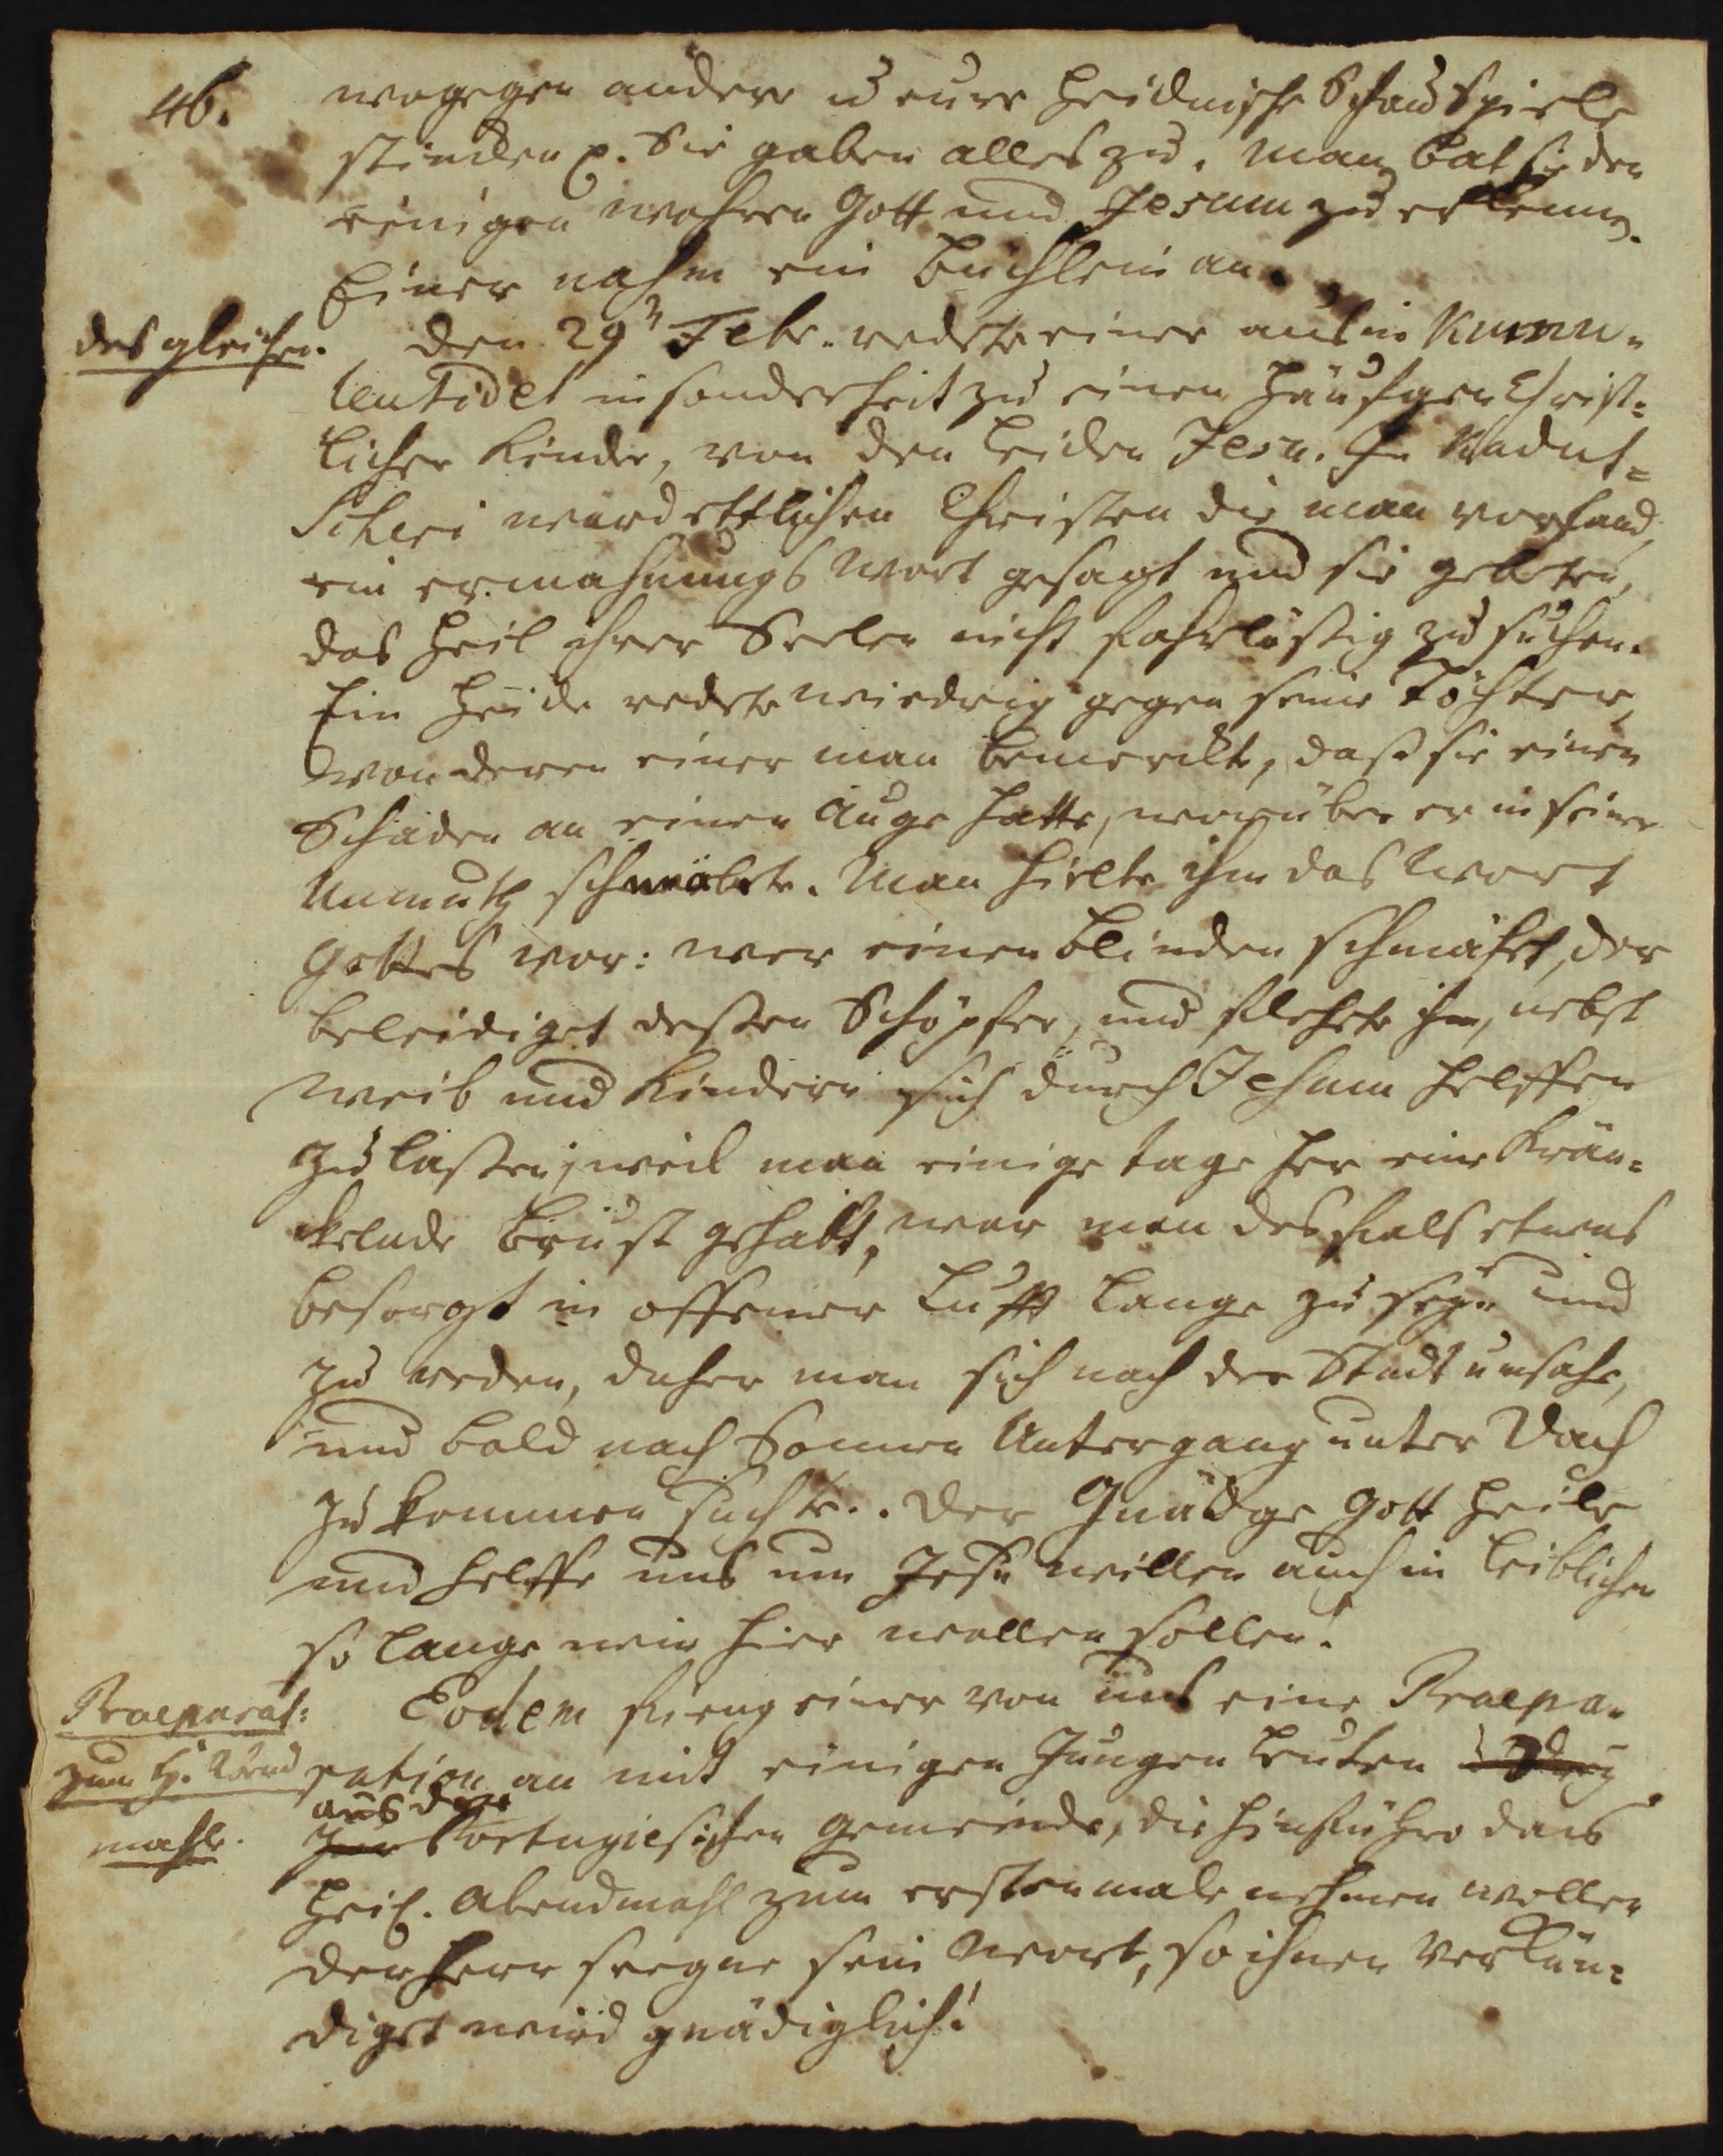 46.
wogegen andere u eure Heidnische Schau Spiele
stinden p. Sie gaben alles zu. Man bat sie den
einigen wahren Gott und Jesum zu erkennen.
Einer nahm ein Büchlein an.
desgleichen.
den 29t Febr. redete einer aus in Kumu-
lentidel insonderheit zu einen Häufgen Christ-
licher Kinder, von den Leiden Jesu. In Wadut-
Scheri ward ettlichen Christen die man vorfand,
ein ermahnungs Wort gesagt und sie gebeten,
das Heil ihrer Seelen nicht fahrläßig zu suchen.
Ein Heide redete niedrig gegen seine Töchter,
von deren einer man bemerckte, daß sie einen
Schaden an einen Auge hatte, worüber er in seinen
Unmuth schmälete. Man hielte ihm das Wort
Gottes vor: wer einen Blinden schmähet, der
beleidiget deßen Schöpfer, und flehete ihn, nebst
Weib und Kindern sich durch Jesum helffen
zu laßen, weil man einige tage her eine Krän-
ckelnde Brust gehabt, war man desfals etwas
besorgt in offener Lufft lange zu seyn und
zu reden, daher man sich nach der Stadt umsahe,
und bald nach Sonnen Untergang unter Dach
zu kommen suchte. Der Gnädge Gott heile
und helffe uns um Jesu willen auch in leiblichen
so lange wir hier wallen sollen!
Praeparat:
zum H. Abend
mahle.
Eodem fieng einer von uns eine Praepa-
ration an mit einigen Jungen Leuten
aus der
Portugiesischen Gemeinde, die hinführo das
Heil. Abendmahl zum erstenmale nehmen wollen
der Herr seegne sein Wort, so ihnen verkün-
diget wird gnädiglich!